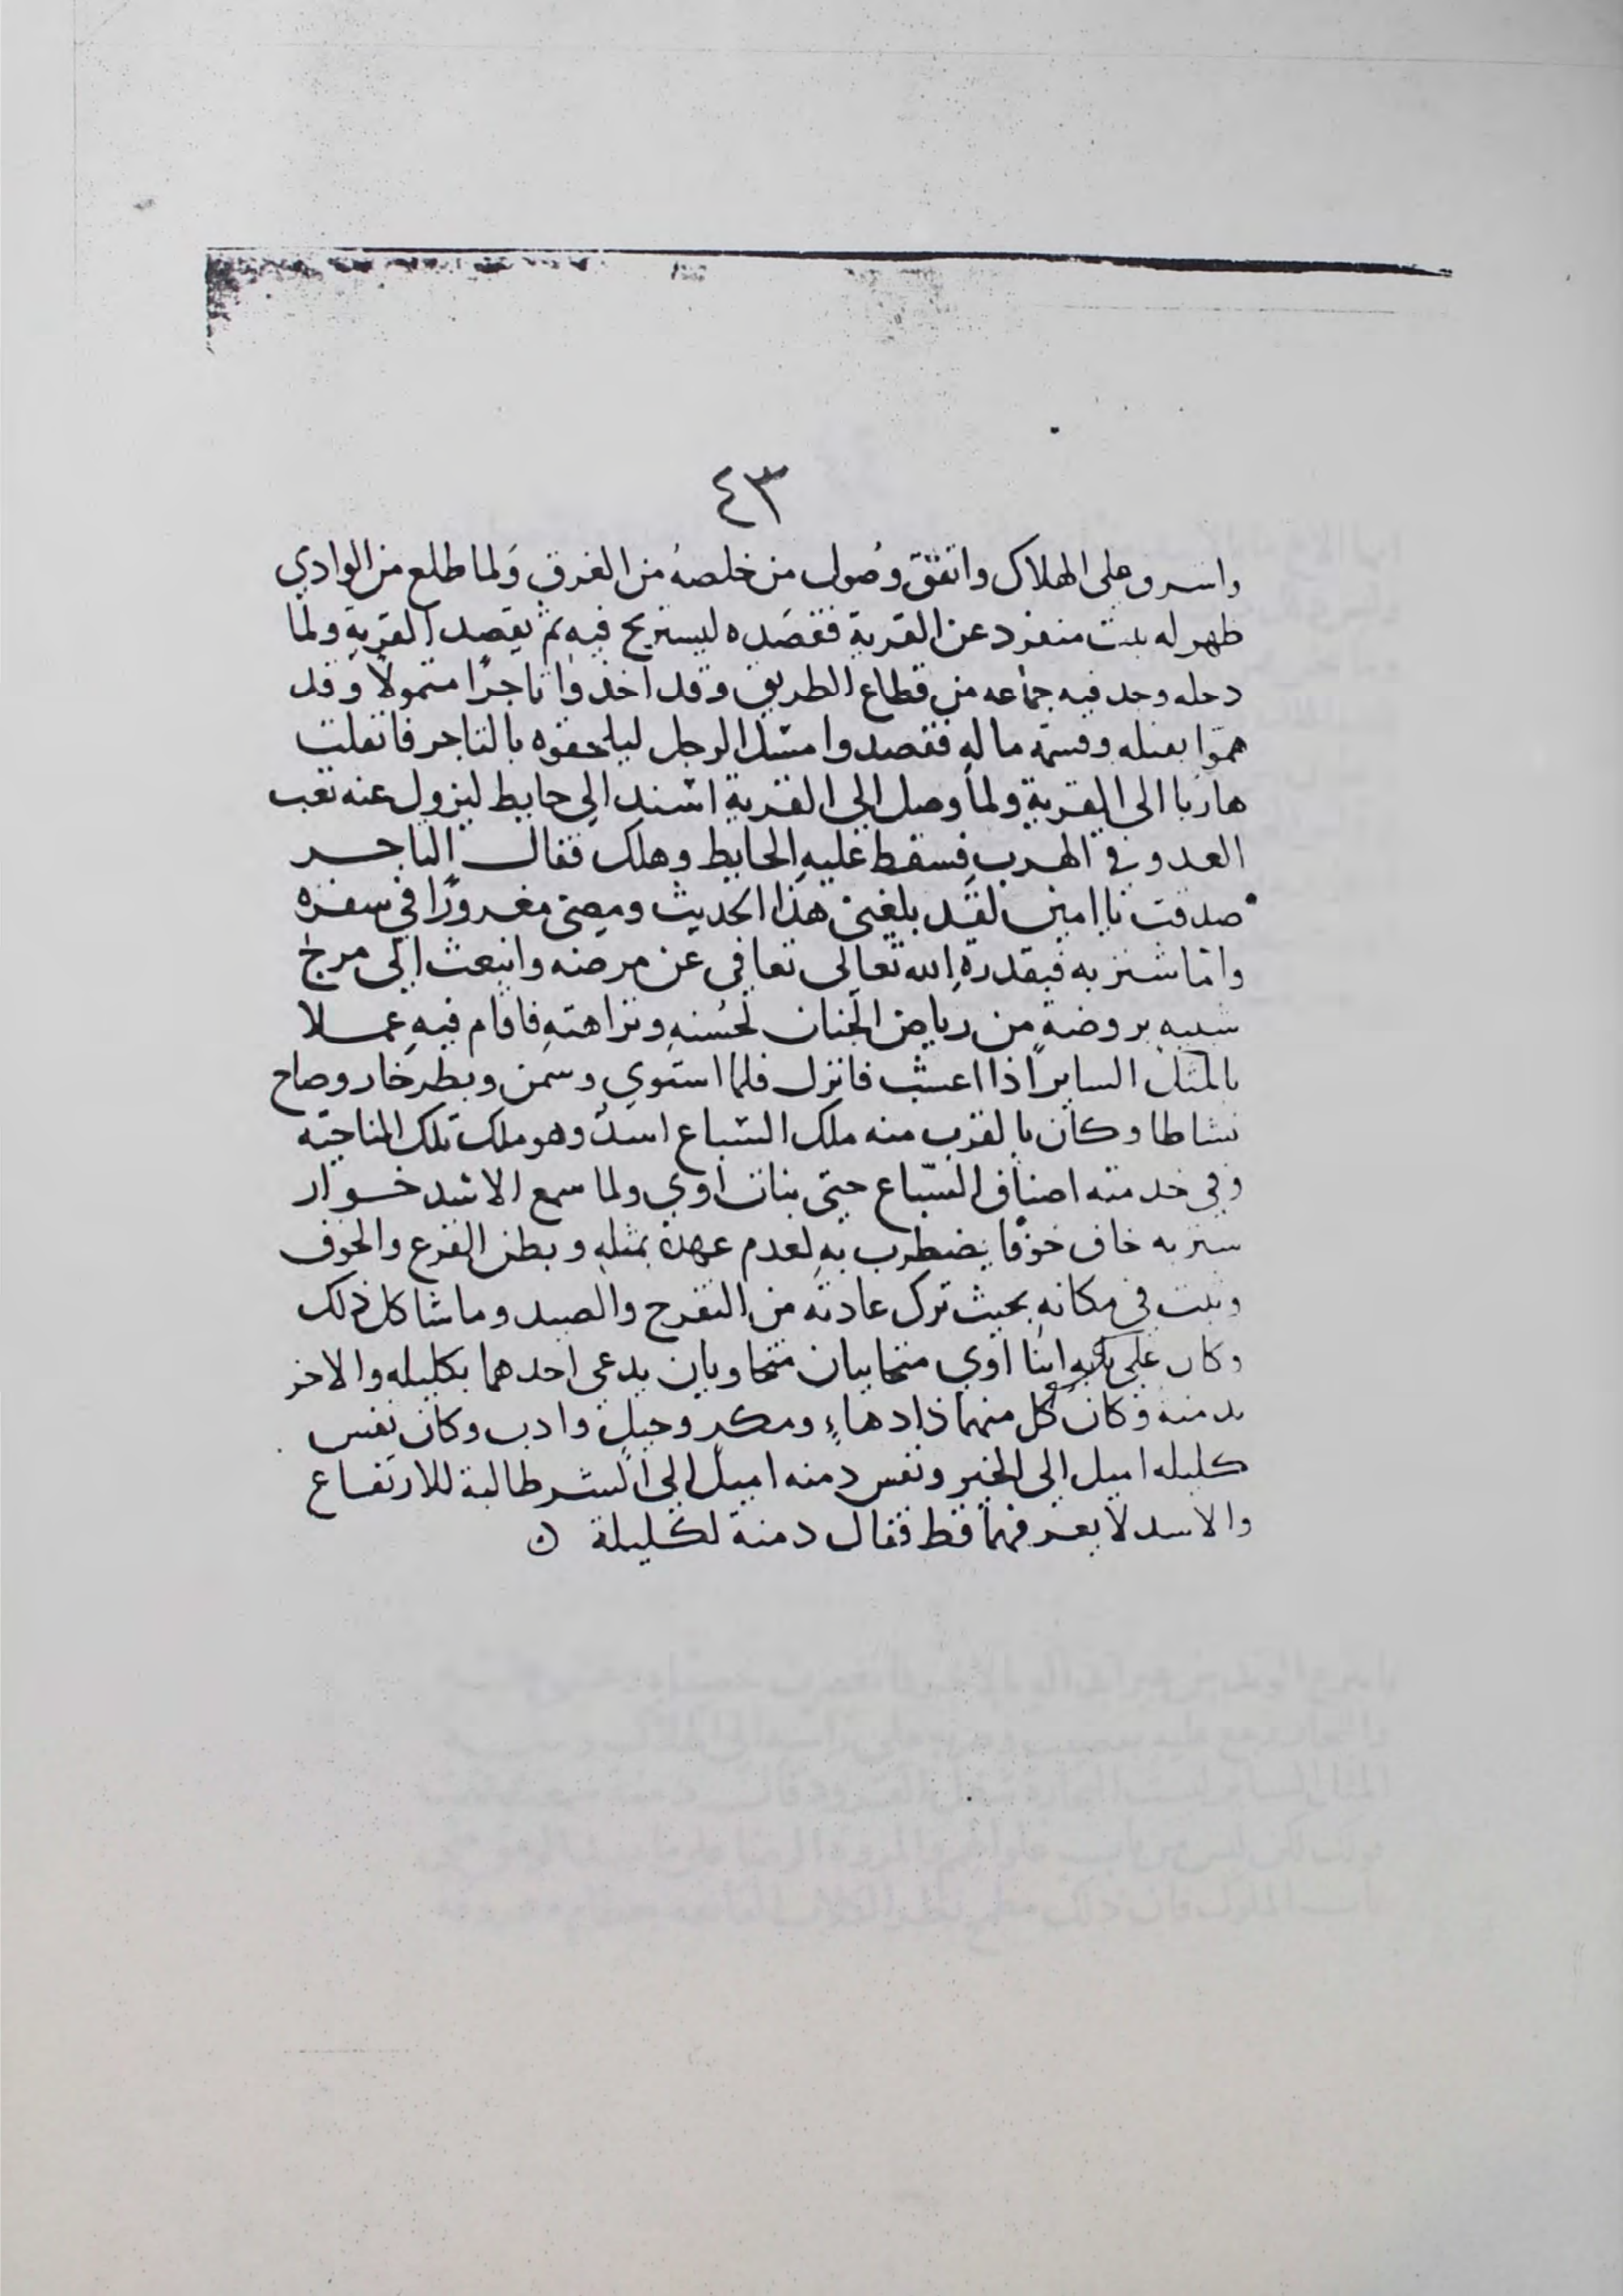 ٤٣
واشرف على الهلاك واتفق وصُول من خلصهُ من الغرق وَلما طلع من الوادي
ظهر له بيت منفرد عن القرية فقصَده ليستريح فيه ثم يقصد القرية ولما
دخله وجد فيه جماعه من قطاع الطريق وقد اخذوا تاجرًا متمولًا وقد
همّوا بقتله وقسمة ماله فقصدوا مسك الرجل ليلحقوه بالتاجر فانفلت
هاربا الى القرية ولما وصل الى القرية استند الى حايط ليزول عنه تعب
العدو في الهرب فسقط عليه الحايط وهلك فقال التاجر
صدقت يا امين لقد بلغني هذا الحديث ومضى مغرورًا في سفره
وامّا شنزبه فبقدرة الله تعالى تعافى عن مرضه وانبعث الى مرج
شبيه بروضةٍ من رياض الجنان لحُسنهِ ونزاهتهِ فاقام فيهِ عملا
بالمثل الساير اذا اعشبت فانزل فلما استوى وسمن وبطر خار وصاح
نشاطا وكان بالقرب منه ملك السّباع اسدٌ وهو ملك تلك الناحيّه
وفي خدمته اصناف السّباع حتى بنات اوي ولما سمع الاسد خوار
شنزبه خاف خوفًا يضطرب بهِ لعدم عهدهِ بمثلهِ وبطن الفزع والخوف
وثبت في مكانه بحيث ترك عادته من التفرج والصيد وما شاكل ذلك
وكان على بابه ابنا اوي متحابيان متحاويان يدعى احدهما بكليله والاخر
بدمنه وكان كل منهما ذا دهاءٍ ومكرٍ وحيلٍ وادب وكان نفس
كليله اميل الى الخير ونفس دمنه اميل الى الشر طالبة للارتفاع
والاسد لا يعرفهما قط فقال دمنة لكليلة ن